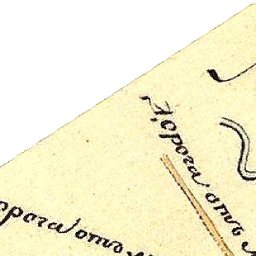 Дорога отъ
орога отъ